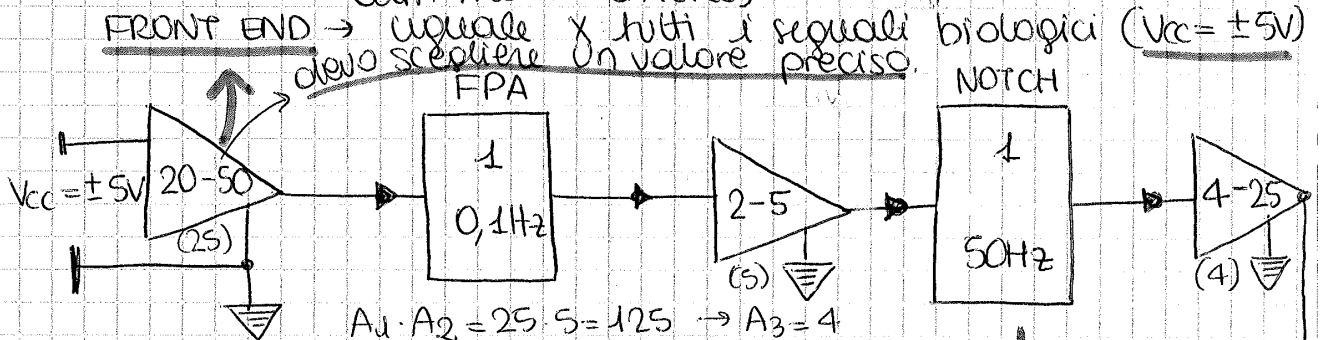 FRONT END → uguale x tutti i segnali biologici (Vcc = ±5V)
devo scegliere un valore preciso.
FPA
NOTCH
Vcc = ±5V
20-50
(25)
1
0,1Hz
2-5
(5)
1
50Hz
4-25
(4)
A1 · A2 = 25 · 5 = 125 → A3 = 4